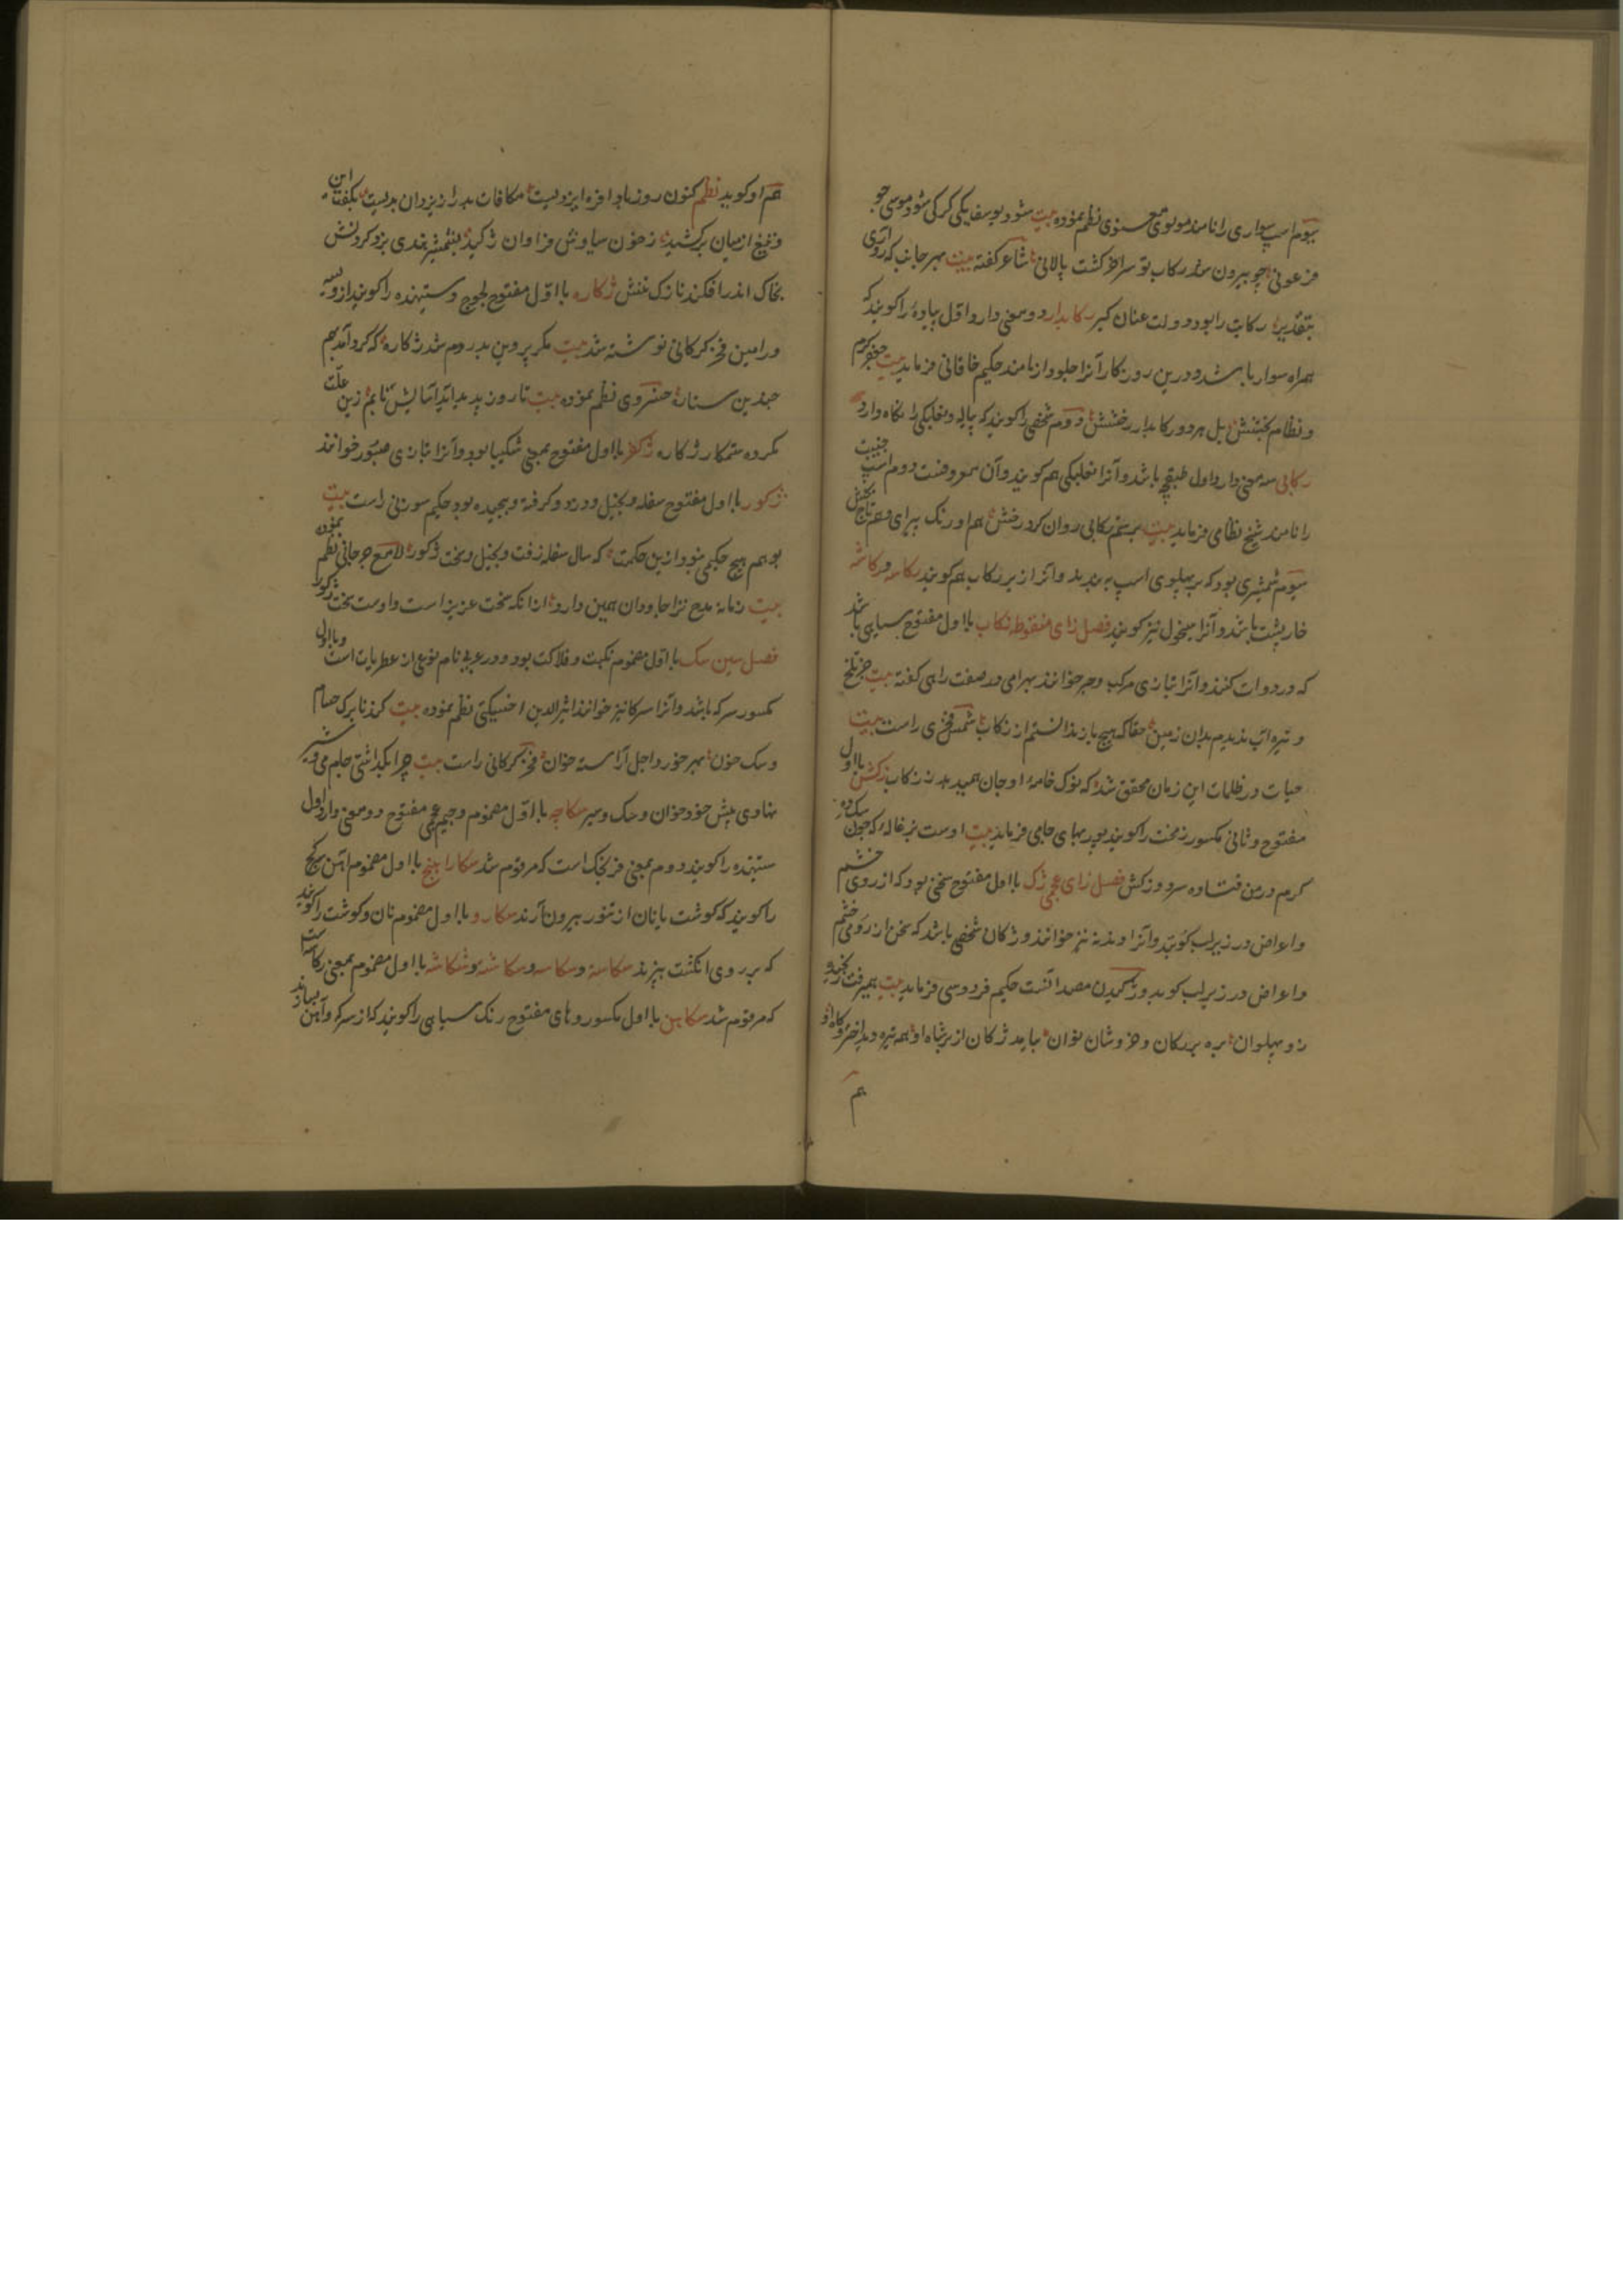 سیوم اسپ سواری را نامند مولوی معنوی نظم نموده بیت شود یوسف یکی گرگی شود موسی چو
فرعونی چو بیرون شد رکاب تو سرافر کشت پالانی شاعر کفته بیت بهر جانب که روآری
بتقدیر رکابت را بود دولت عنان کیر رکابدار دو معنی دارد اول پیادهٔ را کویند که
همراه سوار باشد و درین روزکار آنرا جلودار نامند حکیم خاقانی فرماید بیت
و نظام بل هر دو رکابدار رخشش دوم شخصی را کویند که پیاله و نعلبکی را نکاه دارد
رکابی سه معنی دارد اول طبقچه باشد و آنرا نعلبکی هم کویند و آن معروفست دوم اسپ جنیبت
را نامند شیخ نظامی فرماید بیت برستم رکابی روان کرد رخش هم اورنک پیرای و هم تاج بخش
سیوم شمشیری بود که بر پهلوی اسپ به بندند و آنرا زیر رکاب هم کویند رکاسه و رکاشه
خارپشت باشد و آنرا سیخول نیز کویند فصل زای منقوطه زکاب با اول مفتوح سیاهی باشد
که در دوات کنند و آنرا بتازی مرکب و حبر خوانند بهرامی در صفت راهی کفته بیت جز تلخ
و تیره آب ندیدم بدان زمین حقا که هیچ باز ندانستم از زکاب شمس فخری راست بیت
حیات در ظلمات این زمان محقق شد که نوک خامهٔ او جان همیدهد ز زکاب زکش با اول
مفتوح و ثانی مکسور زمخت را کویند پوربهای جامی فرماید بیت اوست بزغاله که چون سک و
کرم در من فتاده سرد و زکش فصل زای عجمی ژک با اول مفتوح سخنی بود که از روی خشم
و اعراض در زیر لب کویند و آنرا دندنه نیز خوانند و ژکان شخصی باشد که سخن از روی خشم
و اعراض در زیر لب کوید و ژکیدن مصدر آنست حکیم فردوسی فرماید بیت همیرفت رنجیده
زو پهلوان بره بر ژکان و خروشان نوان بیامد ژکان از بر شاه او همه تیره دید اختر و کاه او
هم
هم او کوید نظم کنون روز باد افره ایزدیست مکافات بد را ز یزدان بدیست بکفت این
و تیغ از میان برکشید ز خون سیاوش فراوان ژکید بشمشیر هندی بزد کردنش
بخاک اندر افکند نازک تنش ژکاره با اول مفتوح لجوج و ستیهنده را کویند از ویسه
ورامین فخر کرکانی نوشته شد بیت مکر پروین بدروم شد ژکاره که کرد آمد بهم
چندین ستاره خسروی نظم نموده بیت تا روز پدید آید آسایش نیابم زین علت
مکروه ستمکار ژکاره ژکفر با اول مفتوح بمعنی شکیبا بود و آنرا بتازی صبور خوانند
ژکور با اول مفتوح سفله و بخیل و درد و کرفته و پیچیده بود حکیم سوزنی راست بیت
بو هم هیچ حکیمی نبود ازین حکمت که سال سفله زفت و بخیل و بخت ژکور لامع جرجانی نظم نموده
بیت زمانه مدح ترا جاودان همین دارد از انکه سخت عزیز است و اوست سخت ژکور
فصل سین سک با اول مضموم نکبت و فلاکت بود و در عربی نام نوعی از عطریات است و با اول
مکسور سرکه باشد و آنرا سرکا نیز خوانند اثیرالدین اخسیکتی نظم نموده بیت
و سک خون بهر خورد اجل آراسته خوان فخر کرکانی راست بیت چرا بکذاشتی جام می و شیر
نهادی پیش خود خوان و سک و سیر سکاچه با اول مضموم و جیم عجمی مفتوح دو معنی دارد اول
ستیهنده را کویند دوم بمعنی فرنجک است که مرقوم شد سکاراهنج با اول مضموم آهن کج
را کویند که کوشت یا نان از تنور بیرون آرند سکارو با اول مضموم نان و کوشت را کویند
که بر روی انکشت بپزند سکاسه و سکاسه و سکاشه و شکاشه با اول مضموم بمعنی رکاسه است
که مرقوم شد سکاهن با اول مکسور و های مفتوح رنک سیاهی را کویند که از سرکه و آهن بسازند